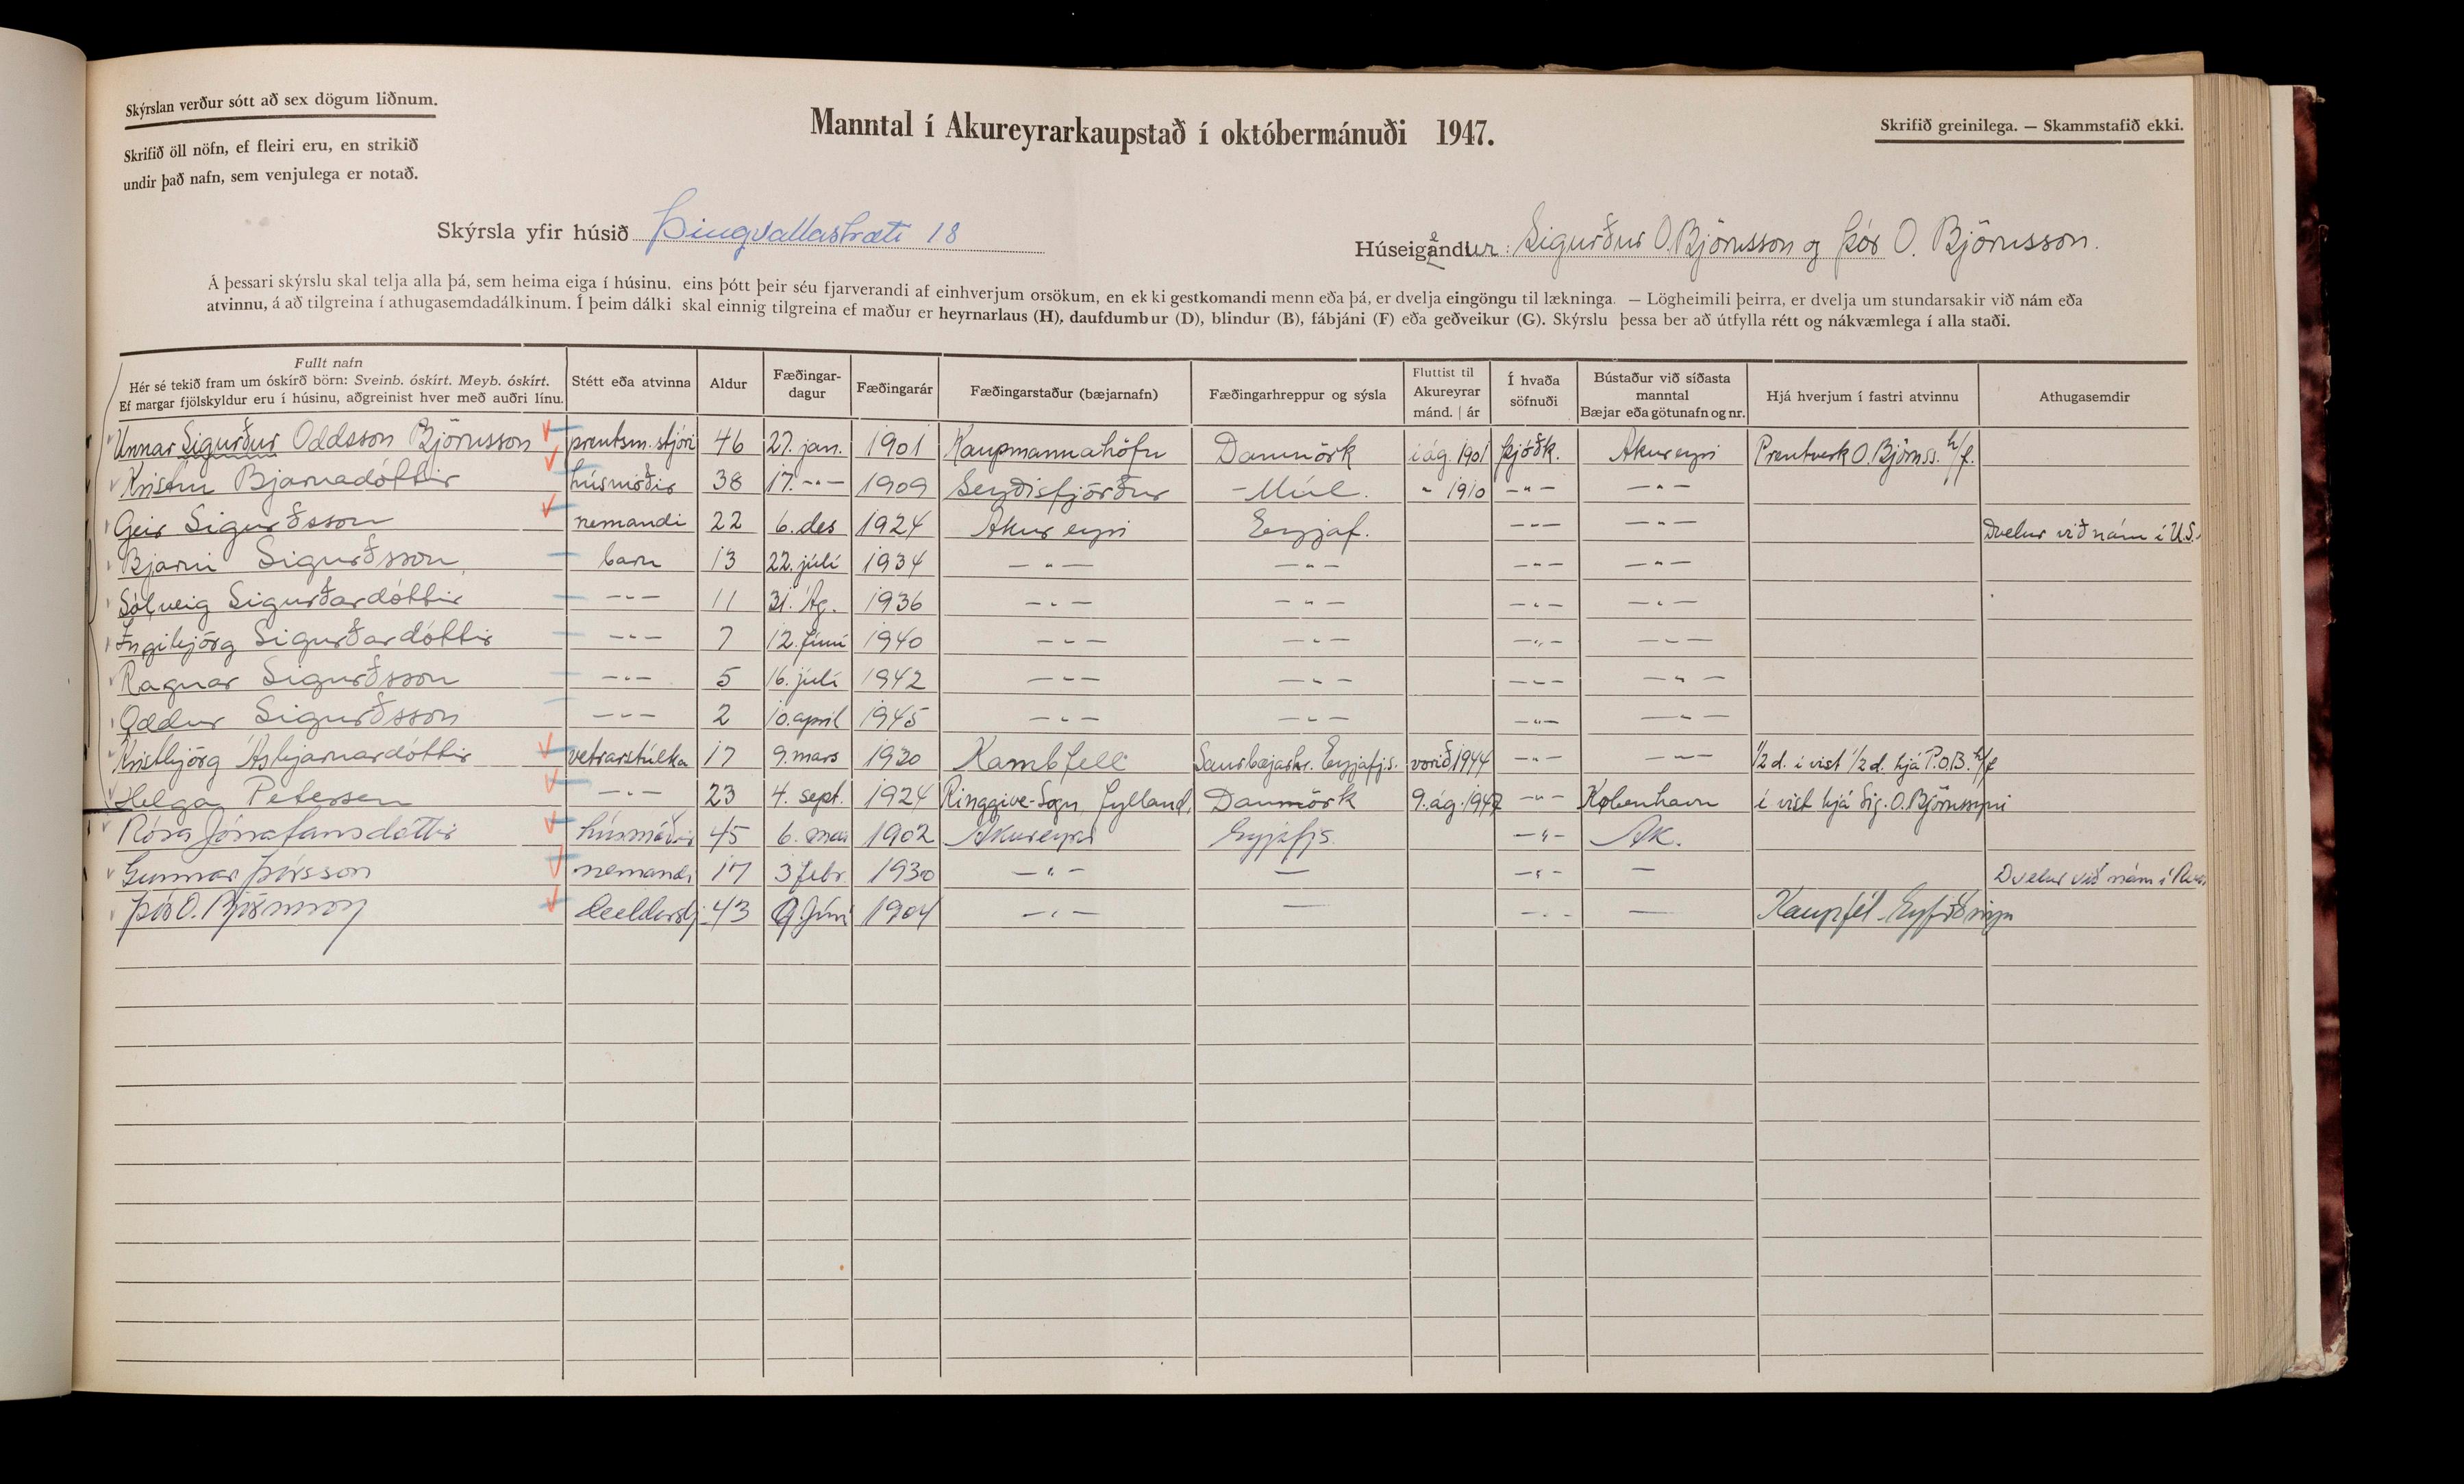 Skýrslan verður sótt að sex dögum liðnum.
Skrifið öll nöfn, ef fleiri eru, en strikið
undir það nafn, sem venjulega er notað.
Manntal í Akureyrarkaupstað í októbermánuði 1947.
Skrifið greinilega. — Skammstafið ekki.
Skýrsla yfir húsið Þingvallastræti 18
Húseigendur: Sigurður O. Björnsson og Þór O. Björnsson.
Á þessari skýrslu skal telja alla þá, sem heima eiga í húsinu, eins þótt þeir séu fjarverandi af einhverjum orsökum, en ekki gestkomandi menn eða þá, er dvelja eingöngu til lækninga. — Lögheimili þeirra, er dvelja um stundarsakir við nám eða
atvinnu, á að tilgreina í athugasemdadálkinum. Í þeim dálki skal einnig tilgreina ef maður er heyrnarlaus (H), daufdumbur (D), blindur (B), fábjáni (F) eða geðveikur (G). Skýrslu þessa ber að útfylla rétt og nákvæmlega í alla staði.
Fullt nafn
Hér sé tekið fram um óskírð börn: Sveinb. óskírt. Meyb. óskírt.
Ef margar fjölskyldur eru í húsinu, aðgreinist hver með auðri línu.
Stétt eða atvinna
Aldur
Fæðingar-
dagur
Fæðingarár
Fæðingarstaður (bæjarnafn)
Fæðingarhreppur og sýsla
Fluttist til
Akureyrar
mánd. | ár
Í hvaða
söfnuði
Bústaður við síðasta
manntal
Bæjar eða götunafn og nr.
Hjá hverjum í fastri atvinnu
Athugasemdir
Unnar Sigurður Oddsson Björnsson prentsm.stjóri 46 27. jan. 1901 Kaupmannahöfn Danmörk í ág. 1901 Þjóðk. Akureyri Prentverk O. Björnss. h/f.
Kristín Bjarnadóttir húsmóðir 38 17. -"- 1909 Seyðisfjörður -Múl. " 1910 -"- -"-
Geir Sigurðsson nemandi 22 6. des 1924 Akureyri Eyjaf. -"- -"- Dvelur við nám í U.S.
Bjarni Sigurðsson barn 13 22. júlí 1934 -"- -"- -"- -"-
Sólveig Sigurðardóttir -"- 11 31. Ág. 1936 -"- -"- -"- -"-
Ingibjörg Sigurðardóttir -"- 7 12. Júní 1940 -"- -"- -"- -"-
Ragnar Sigurðsson -"- 5 16. júlí 1942 -"- -"- -"- -"-
Oddur Sigurðsson -"- 2 10. apríl 1945 -"- -"- -"- -"-
Kristbjörg Ásbjarnardóttir vetrarstúlka 17 9. mars 1930 Kambfell Saurbæjarhr. Eyjafj.s. vorið 1944 -"- -"- 1/2 d. í vist 1/2 d. hjá P.O.B. h/f
Helga Petersen -"- 23 4. sept. 1924 Ringgive-Sogn, Jylland, Danmörk 9. ág. 1947 -"- København í vist hjá Sig. O. Björnssyni
Rósa Jónatansdóttir húsmóðir 45 6. maí 1902 Akureyri Eyjafjs. -"- Ak.
Gunnar Þórsson nemandi 17 3 febr. 1930 -"- — -"- — Dvelur við nám í
Þór O. Björnsson 43 9. Júní 1904 -"- — -"- — Kaupfél. Eyfirðinga